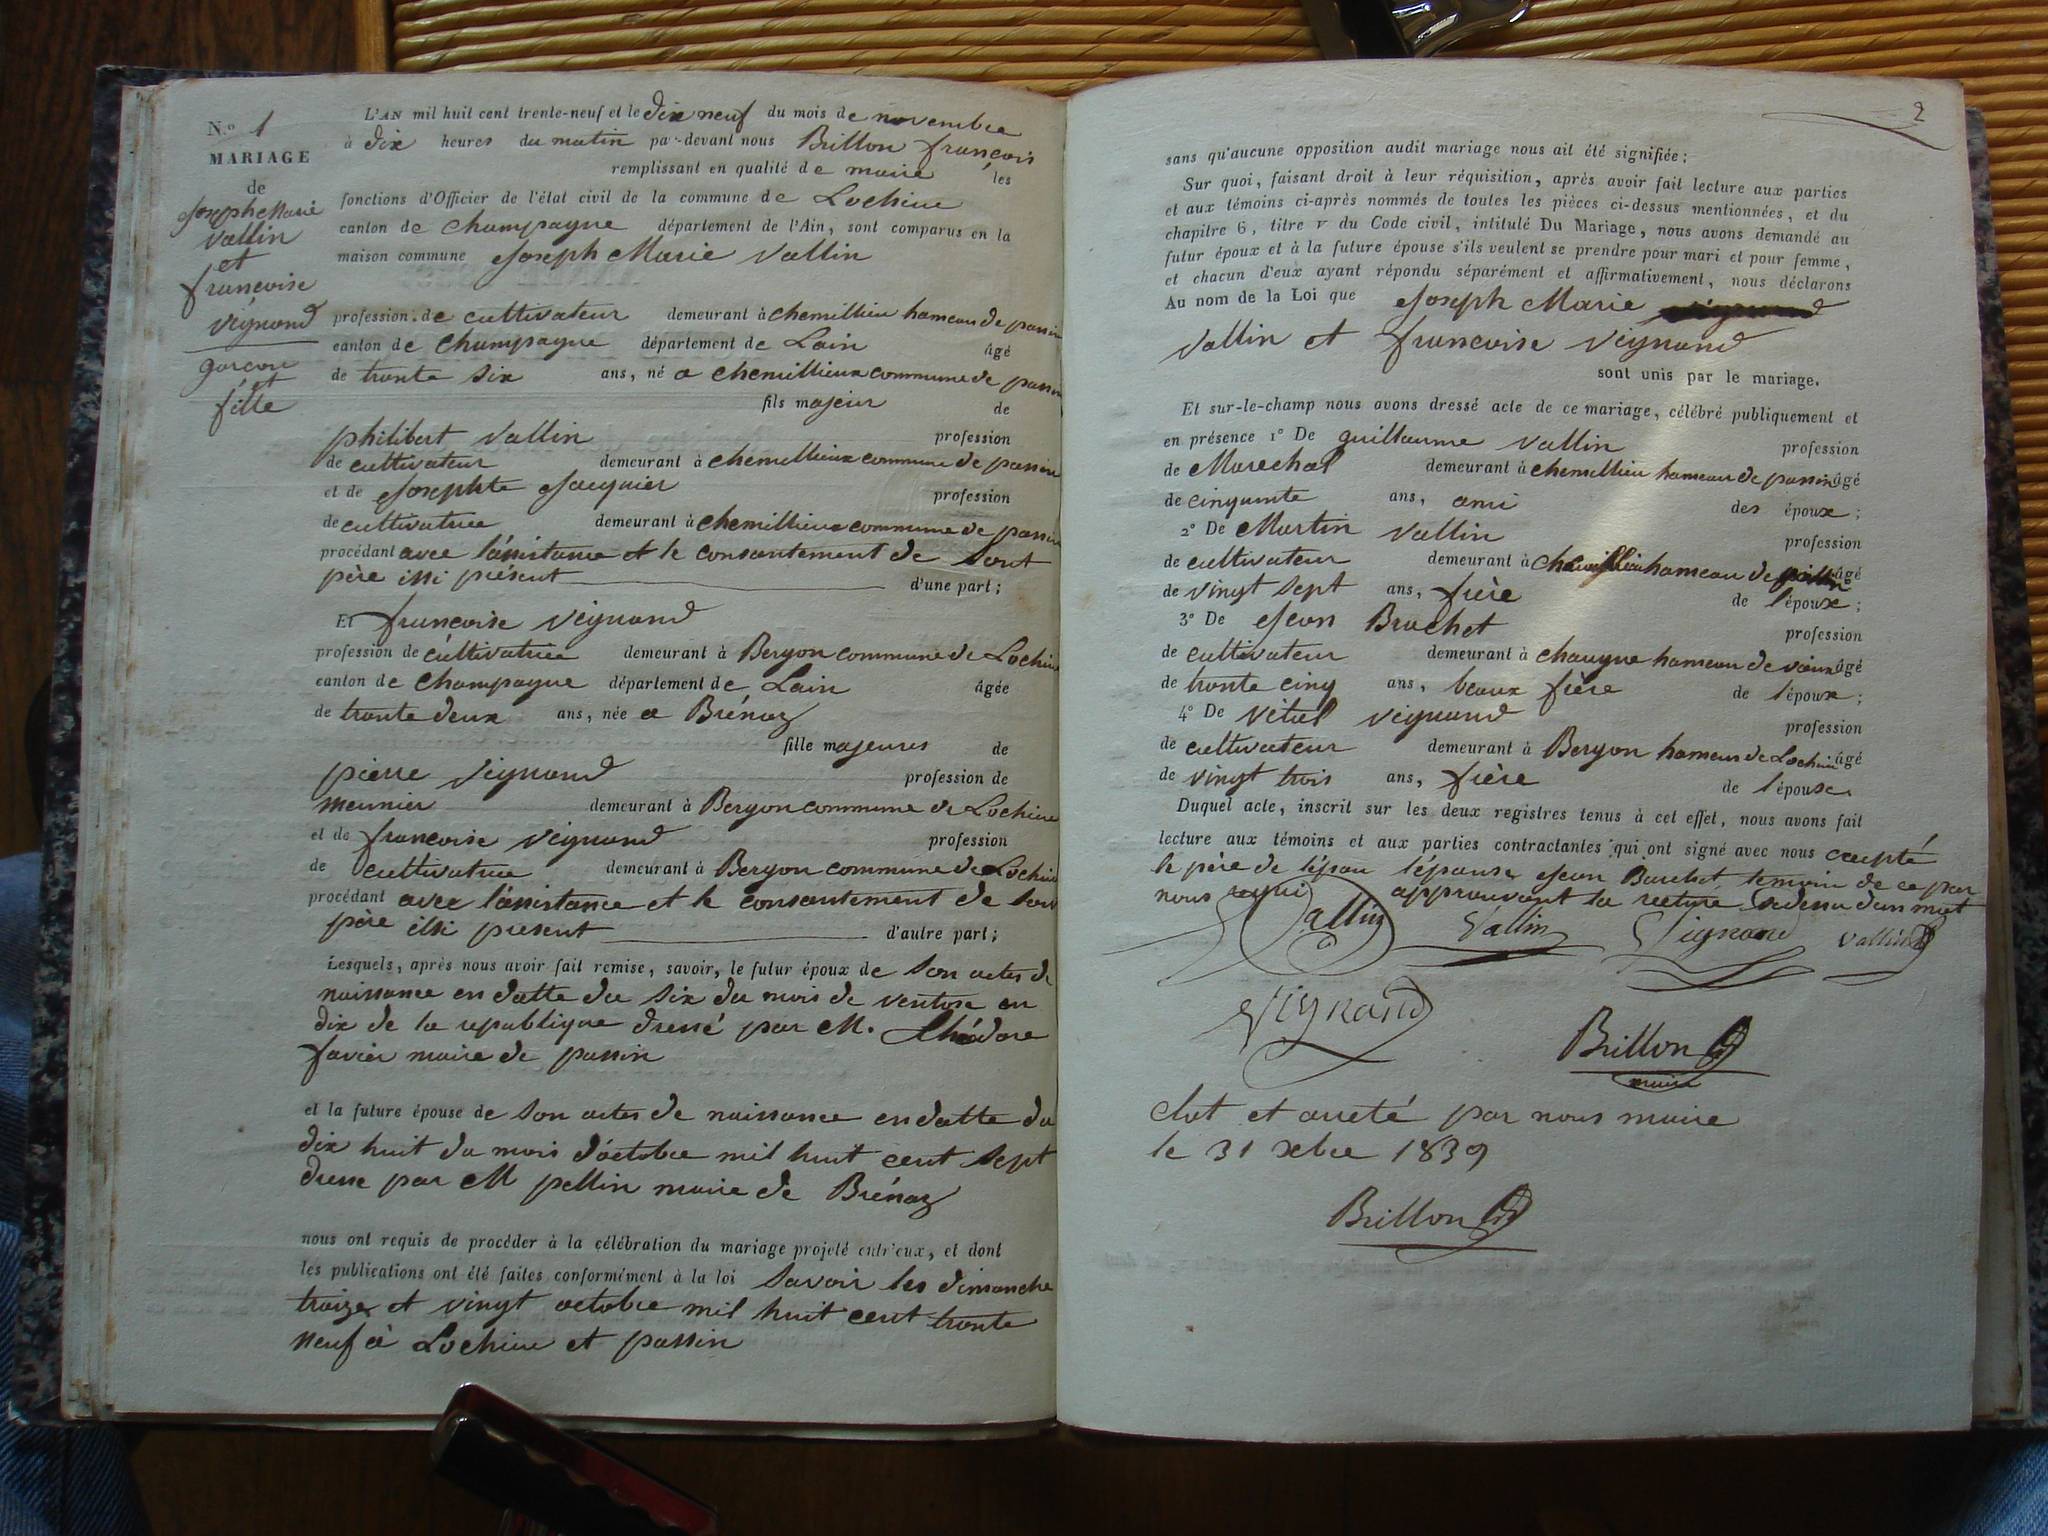 N.o 1
MARIAGE
de
Joseph Marie
vallin
et
francoise
veignand
garcon
et
fille
L'AN mil huit cent trente-neuf et le dix neuf du mois de novembre
à dix heures du matin par-devant nous Brillon françois
remplissant en qualité de maire les
fonctions d'Officier de l'état civil de la commune de Lochieu
canton de champagne département de l'Ain, sont comparus en la
maison commune Joseph Marie vallin
profession de cultivateur demeurant à chemillieu hameau de passin
canton de champagne département de Lain âgé
de trante six ans, né a chemillieux commune de passin
fils majeur de
philibert vallin profession
de cultivateur demeurant à chemellieux commune de passin
et de Josephte Jacquier profession
de cultivatrice demeurant à chemillieux commune de passin
procédant avec l'assistance et le consantement de sont
père issi présent d'une part;
Et francoise veignand
profession de cultivatrice demeurant à Beryon commune de Lochieu
canton de champagne département de Lain âgée
de trante deux ans, née a Brénaz
fille majeures de
pierre veignand profession de
meunier demeurant à Beryon commune de Lochieu
et de francoise veignand profession
de cultivatrice demeurant à Beryon commune de Lochieu
procédant avec l'assistance et le consantement de son
père issi present d'autre part;
Lesquels, après nous avoir fait remise, savoir, le futur époux de son actes de
naissance en datte du six du mois de ventose an
dix de la republique dressé par M. théodore
favier maire de passin
et la future épouse de son actes de naissance en datte du
dix huit du mois d'octobre mil huit cent sept
dresse par M pellin maire de Brénaz
nous ont requis de procéder à la célébration du mariage projeté entr'eux, et dont
les publications ont été faites conformément à la loi savoir les dimanche
traize et vingt octobre mil huit cent trante
neuf à Lochieu et passin
2
sans qu'aucune opposition audit mariage nous ait été signifiée;
Sur quoi, faisant droit à leur réquisition, après avoir fait lecture aux parties
et aux témoins ci-après nommés de toutes les pièces ci-dessus mentionnées, et du
chapitre 6, titre v du Code civil, intitulé Du Mariage, nous avons demandé au
futur époux et à la future épouse s'ils veulent se prendre pour mari et pour femme,
et chacun d'eux ayant répondu séparément et affirmativement, nous déclarons
Au nom de la Loi que Joseph Marie
vallin et francoise veignand
sont unis par le mariage.
Et sur-le-champ nous avons dressé acte de ce mariage, célébré publiquement et
en présence 1o De guillaume vallin profession
de Marechal demeurant à chemillieu hameau de passin âgé
de cinquante ans, ami des époux;
2o De Martin vallin profession
de cultivateur demeurant à chemillieu hameau de passin âgé
de vingt sept ans, frère de l'époux;
3o De Jean Brachet profession
de cultivateur demeurant à chaugne hameau de vieux âgé
de trante cinq ans, beaux frère de l'époux;
4o De vétal veignand profession
de cultivateur demeurant à Beryon hameau de Lochieu âgé
de vingt trois ans, frère de l'épouse
Duquel acte, inscrit sur les deux registres tenus à cet effet, nous avons fait
lecture aux témoins et aux parties contractantes qui ont signé avec nous excepté
le père de l'épou l'épouse Jean Barchet temoin de ce par
nous requi approuvant la rature sedessu dun mot
Vallin Vallin Vignand vallin
Vignand
Brillon
maire
clot et arreté par nous maire
le 31 xbre 1839
Brillon